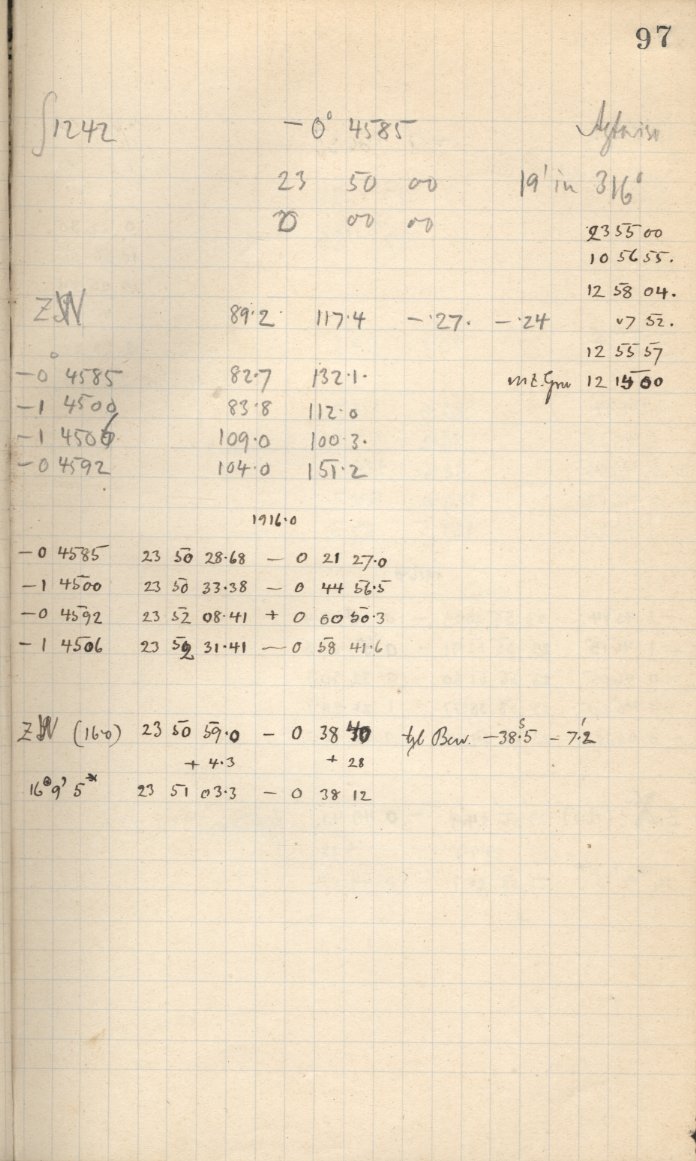 97
1242 −0° 4585
23 50 00 19' in 316°
0 00 00
23 55 00
10 56 55.
12 58 04.
ZW 89.2 117.4 −.27. −.24
07 52.
12 55 57
−0° 4585 82.7 132.1.
m.Z.Grw 12 15 00
−1 4500 83.8 112.0
−1 4506 109.0 100.3.
−0 4592 104.0 151.2
1916.0
−0 4585 23 50 28.68 − 0 21 27.0
−1 4500 23 50 33.38 − 0 44 56.5
−0 4592 23 52 08.41 + 0 00 50.3
−1 4506 23 52 31.41 − 0 58 41.6
ZW (16.0) 23 50 59.0 − 0 38 40 tgl Bew. −38.5ˢ − 7.2'
+ 4.3 + 28
23 51 03.3 − 0 38 12